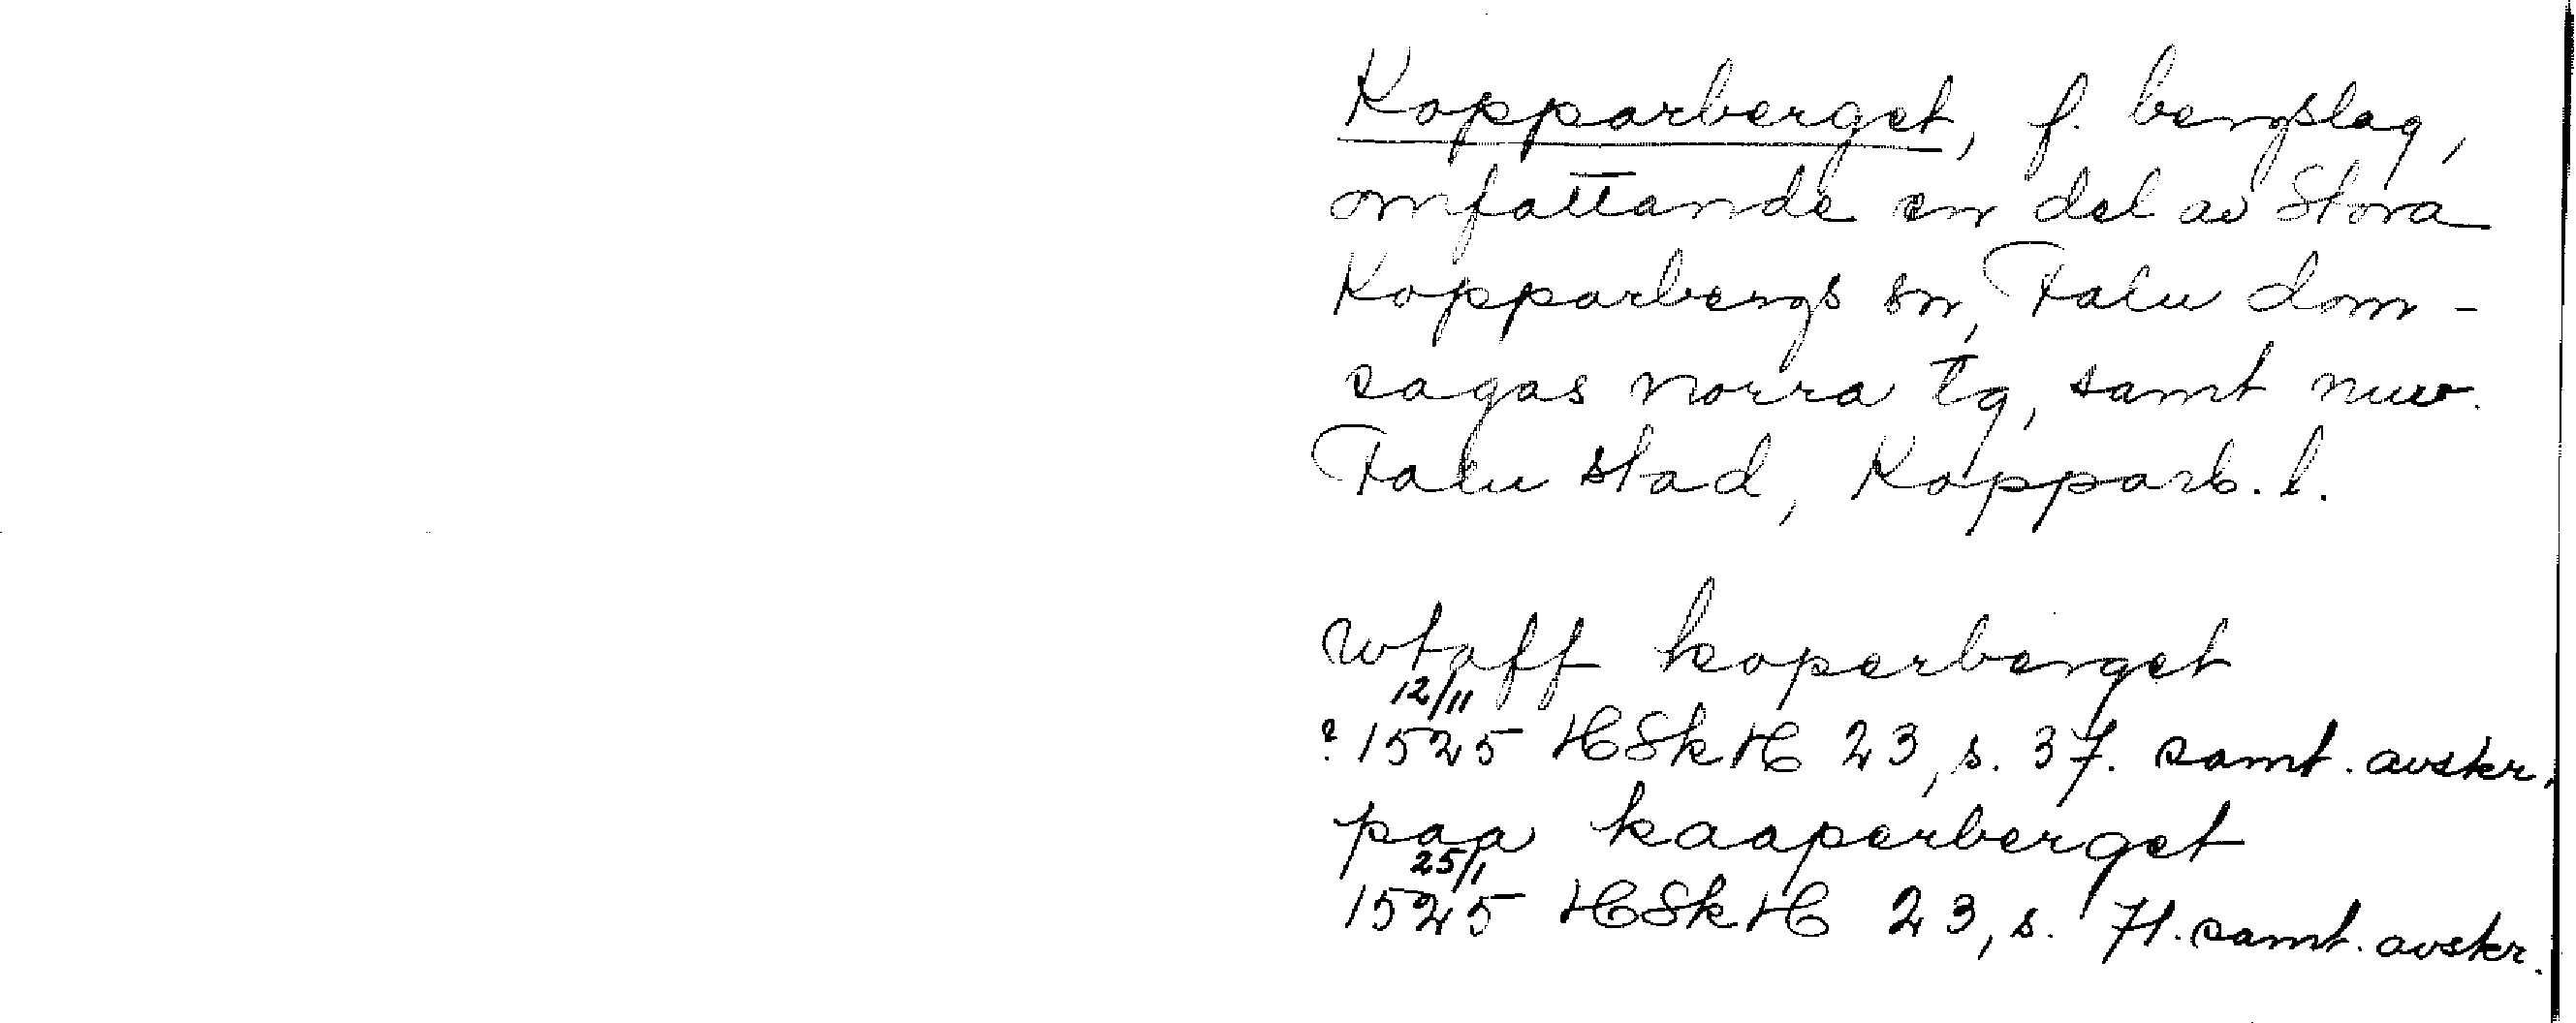 Kopparberget, f. bergslag,
omfattande en del av Stora
Kopparbergs sn, Falu dom-
sagas norra tg, samt nuv.
Falu stad, Kopparb. l.
wtaff koperberget
12/11
? 1525 HSkH 23, s. 37. samt. avskr.
paa kaaperberget
25/1
1525 HSkH 23, s. 71. samt. avskr.